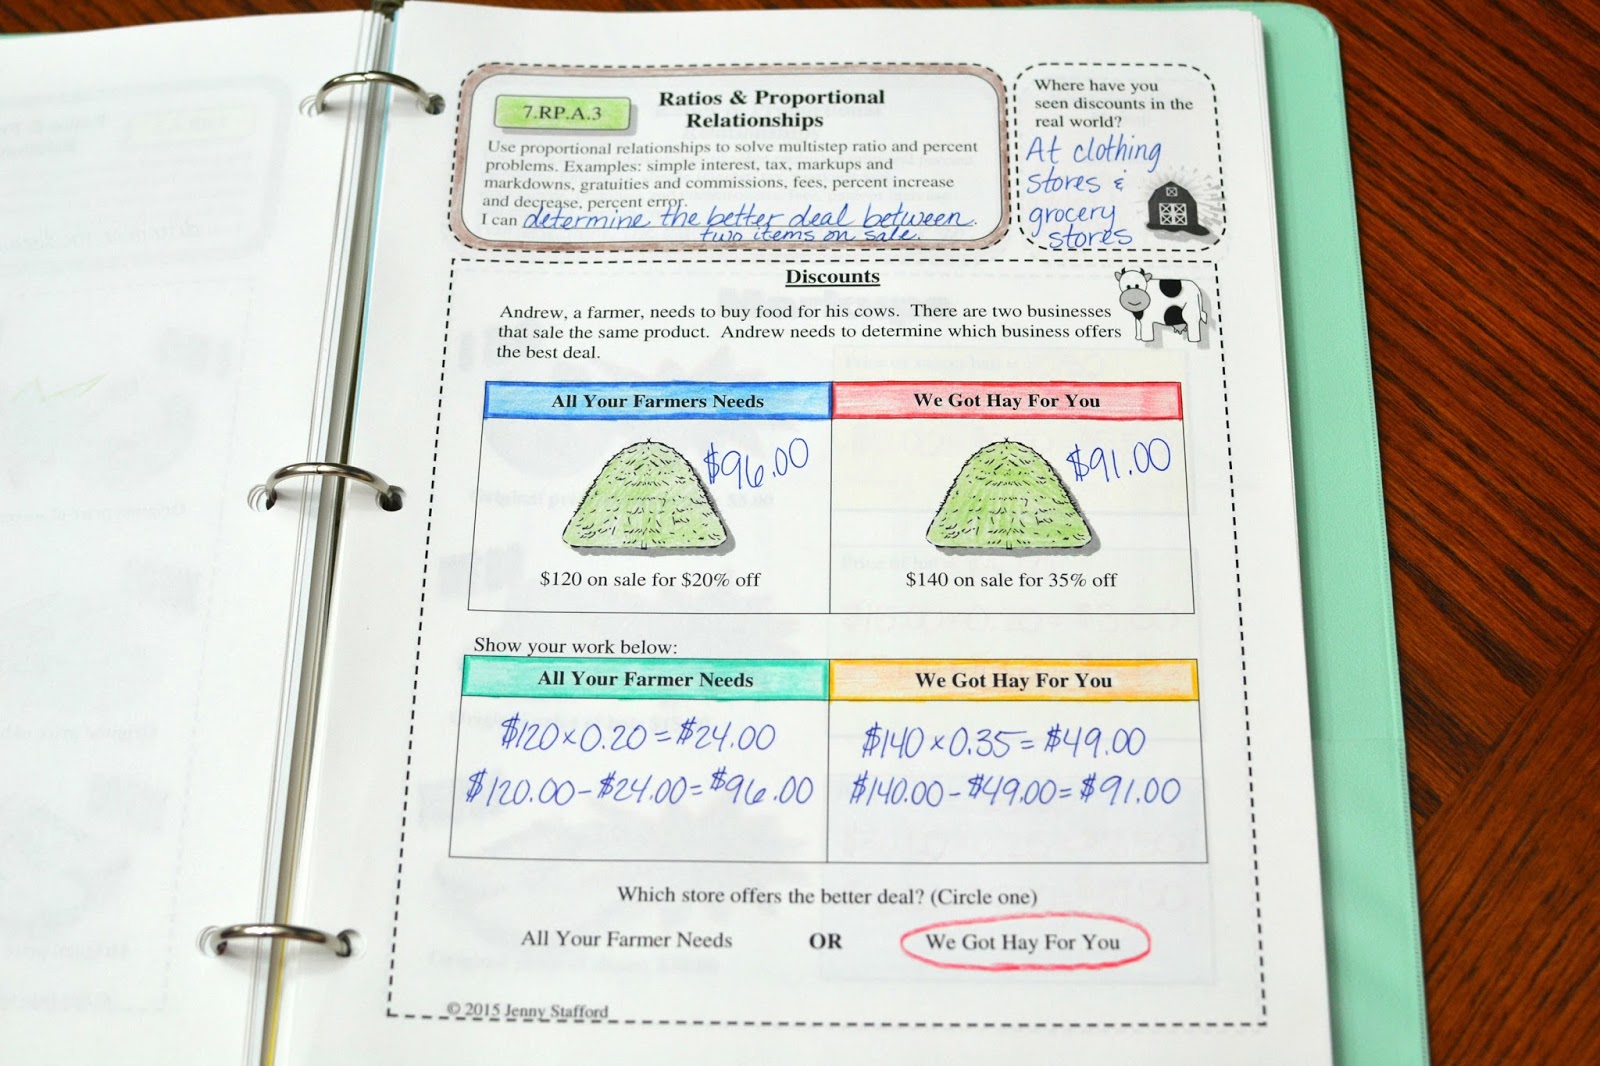 7.RP.A.3
Ratios & Proportional
Relationships
Use proportional relationships to solve multistep ratio and percent
problems. Examples: simple interest, tax, markups and
markdowns, gratuities and commissions, fees, percent increase
and decrease, percent error.
I can determine the better deal between
two items on sale.
Where have you
seen discounts in the
real world?
At clothing
stores &
grocery
stores
Discounts
Andrew, a farmer, needs to buy food for his cows. There are two businesses
that sale the same product. Andrew needs to determine which business offers
the best deal.
All Your Farmers Needs
We Got Hay For You
$96.00
$91.00
$120 on sale for $20% off
$140 on sale for 35% off
Show your work below:
All Your Farmer Needs
We Got Hay For You
$120 x 0.20 = $24.00
$120.00 - $24.00 = $96.00
$140 x 0.35 = $49.00
$140.00 - $49.00 = $91.00
Which store offers the better deal? (Circle one)
All Your Farmer Needs OR We Got Hay For You
© 2015 Jenny Stafford